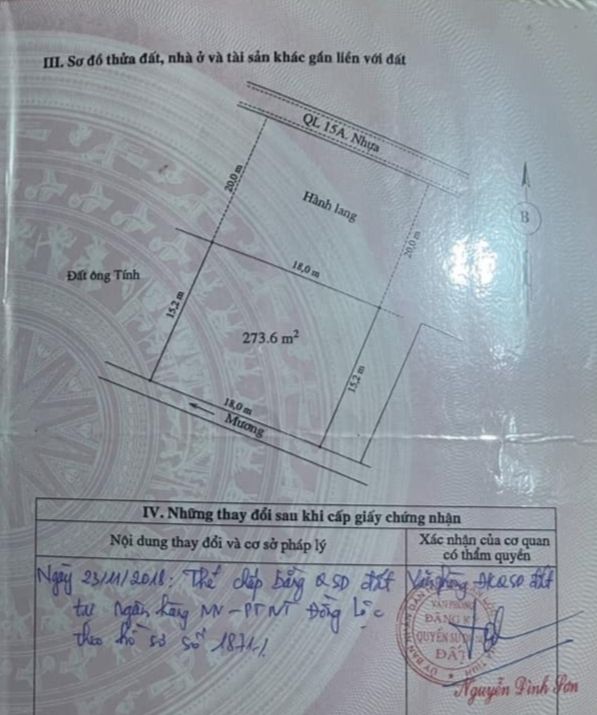 III. Sơ đồ thửa đất, nhà ở và tài sản khác gắn liền với đất
QL 15A. Nhựa
20,0 m
Hành lang
20,0 m
B
Đất ông Tính
18,0 m
15,2 m
273.6 m²
15,2 m
18,0 m
Mương
IV. Những thay đổi sau khi cấp giấy chứng nhận
Nội dung thay đổi và cơ sở pháp lý
Xác nhận của cơ quan
có thẩm quyền
Ngày 23/11/2018: Thế chấp bằng QSD đất
tại Ngân hàng NN-PTNT Đồng Lộc
theo hồ sơ số 1871.
Văn phòng ĐKQSD đất
VĂN PHÒNG
ĐĂNG KÝ
QUYỀN SỬ DỤNG
ĐẤT
Nguyễn Đình Sơn